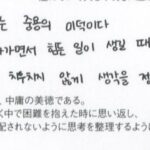 는 중용의 미덕이다
가면서 힘든 일이 생길 때
치우치지 않게 생각을 정
、中庸の美徳である。
く中で困難を抱えた時に思い返し、
配されないように思考を整理するように